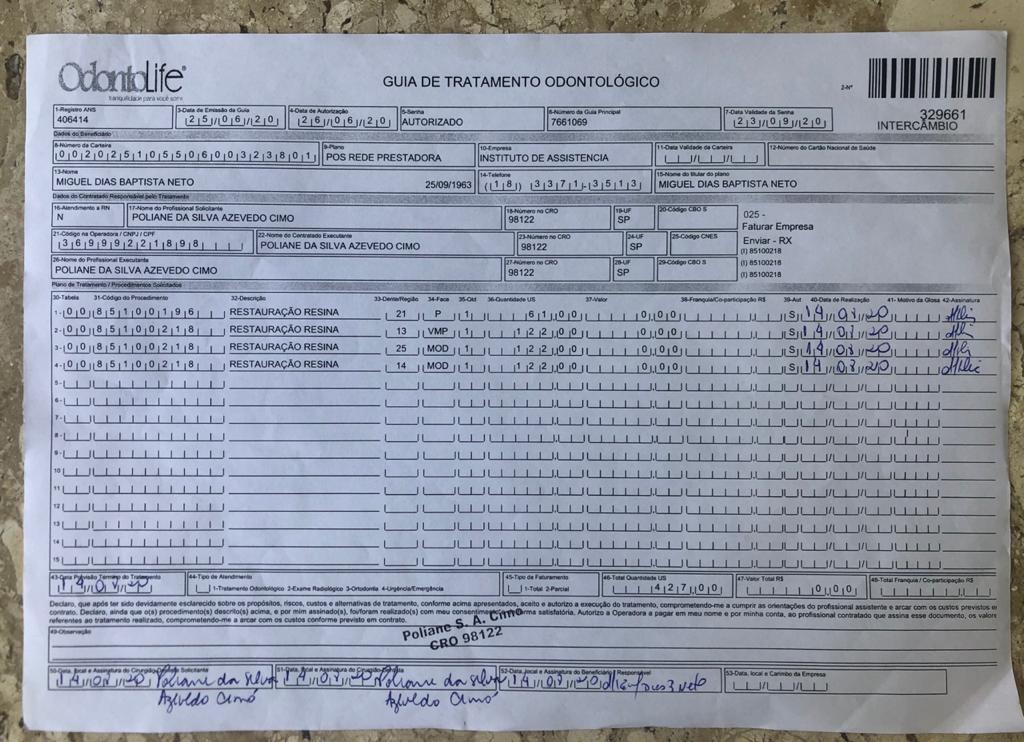 OdontoLife®
tranquilidade para você sorrir
GUIA DE TRATAMENTO ODONTOLÓGICO
2-Nº
329661
INTERCÂMBIO
1-Registro ANS 3-Data de Emissão da Guia 4-Data de Autorização 5-Senha 6-Número da Guia Principal 7-Data Validade da Senha
406414 25/06/20 26/06/20 AUTORIZADO 7661069 23/09/20
Dados do Beneficiário
8-Número da Carteira 9-Plano 10-Empresa 11-Data Validade da Carteira 12-Número do Cartão Nacional de Saúde
00202510550600323801 POS REDE PRESTADORA INSTITUTO DE ASSISTENCIA
13-Nome 14-Telefone 15-Nome do titular do plano
MIGUEL DIAS BAPTISTA NETO 25/09/1963 (18) 3371-3513 MIGUEL DIAS BAPTISTA NETO
Dados do Contratado Responsável pelo Tratamento
16-Atendimento a RN 17-Nome do Profissional Solicitante 18-Número no CRO 19-UF 20-Código CBO S
N POLIANE DA SILVA AZEVEDO CIMO 98122 SP
21-Código na Operadora / CNPJ / CPF 22-Nome do Contratado Executante 23-Número no CRO 24-UF 25-Código CNES
36999221898 POLIANE DA SILVA AZEVEDO CIMO 98122 SP
26-Nome do Profissional Executante 27-Número no CRO 28-UF 29-Código CBO S
POLIANE DA SILVA AZEVEDO CIMO 98122 SP
025 -
Faturar Empresa
Enviar - RX
(I) 85100218
(I) 85100218
(I) 85100218
Plano de Tratamento / Procedimentos Solicitados
30-Tabela 31-Código do Procedimento 32-Descrição 33-Dente/Região 34-Face 35-Qtd 36-Quantidade US 37-Valor 38-Franquia/Co-participação R$ 39-Aut 40-Data de Realização 41- Motivo da Glosa 42-Assinatura
1- 00 85100196 RESTAURAÇÃO RESINA 21 P 1 61,00 0,00 S 14/08/20
2- 00 85100218 RESTAURAÇÃO RESINA 13 VMP 1 122,00 0,00 S 14/08/20
3- 00 85100218 RESTAURAÇÃO RESINA 25 MOD 1 122,00 0,00 S 14/08/20
4- 00 85100218 RESTAURAÇÃO RESINA 14 MOD 1 122,00 0,00 S 14/08/20
5-
6-
7-
8-
9-
10
11
12
13
14
15
43-Data Previsão Término do Tratamento 44-Tipo de Atendimento 45-Tipo de Faturamento 46-Total Quantidade US 47-Valor Total R$ 48-Total Franquia / Co-participação R$
14/08/20 1-Tratamento Odontológico 2-Exame Radiológico 3-Ortodontia 4-Urgência/Emergência 1-Total 2-Parcial 427,00 0,00
Declaro, que após ter sido devidamente esclarecido sobre os propósitos, riscos, custos e alternativas de tratamento, conforme acima apresentados, aceito e autorizo a execução do tratamento, comprometendo-me a cumprir as orientações do profissional assistente e arcar com os custos previstos em
contrato. Declaro, ainda que o(s) procedimento(s) descrito(s) acima, e por mim assinado(s), foi/foram realizado(s) com meu consentimento e de forma satisfatória. Autorizo a Operadora a pagar em meu nome e por minha conta, ao profissional contratado que assina esse documento, os valores
referentes ao tratamento realizado, comprometendo-me a arcar com os custos conforme previsto em contrato.
Poliane S. A. Cimo
CRO 98122
49-Observação
50-Data, local e Assinatura do Cirurgião-Dentista Solicitante 51-Data, local e Assinatura do Cirurgião-Dentista 52-Data, local e Assinatura do Beneficiário / Responsável 53-Data, local e Carimbo da Empresa
14/08/20 Poliane da Silva 14/08/20 Poliane da Silva 14/08/20
Azevedo Cimó Azevedo Cimó